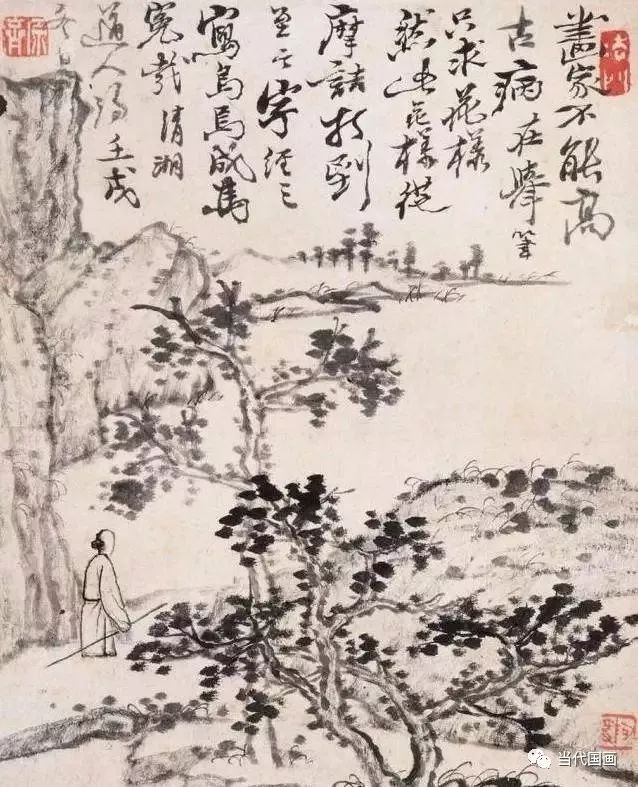 畫家不能高
古病在舉筆
只求花樣
然此花樣從
摩詰打到
至字經三
寫烏焉成馬
冤哉清湘
道人濟壬戌
冬日
当代国画